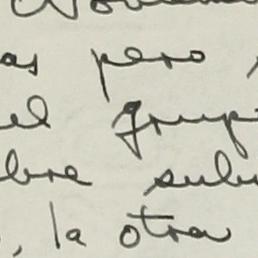 as pero
el grup
bre sub
, la otra